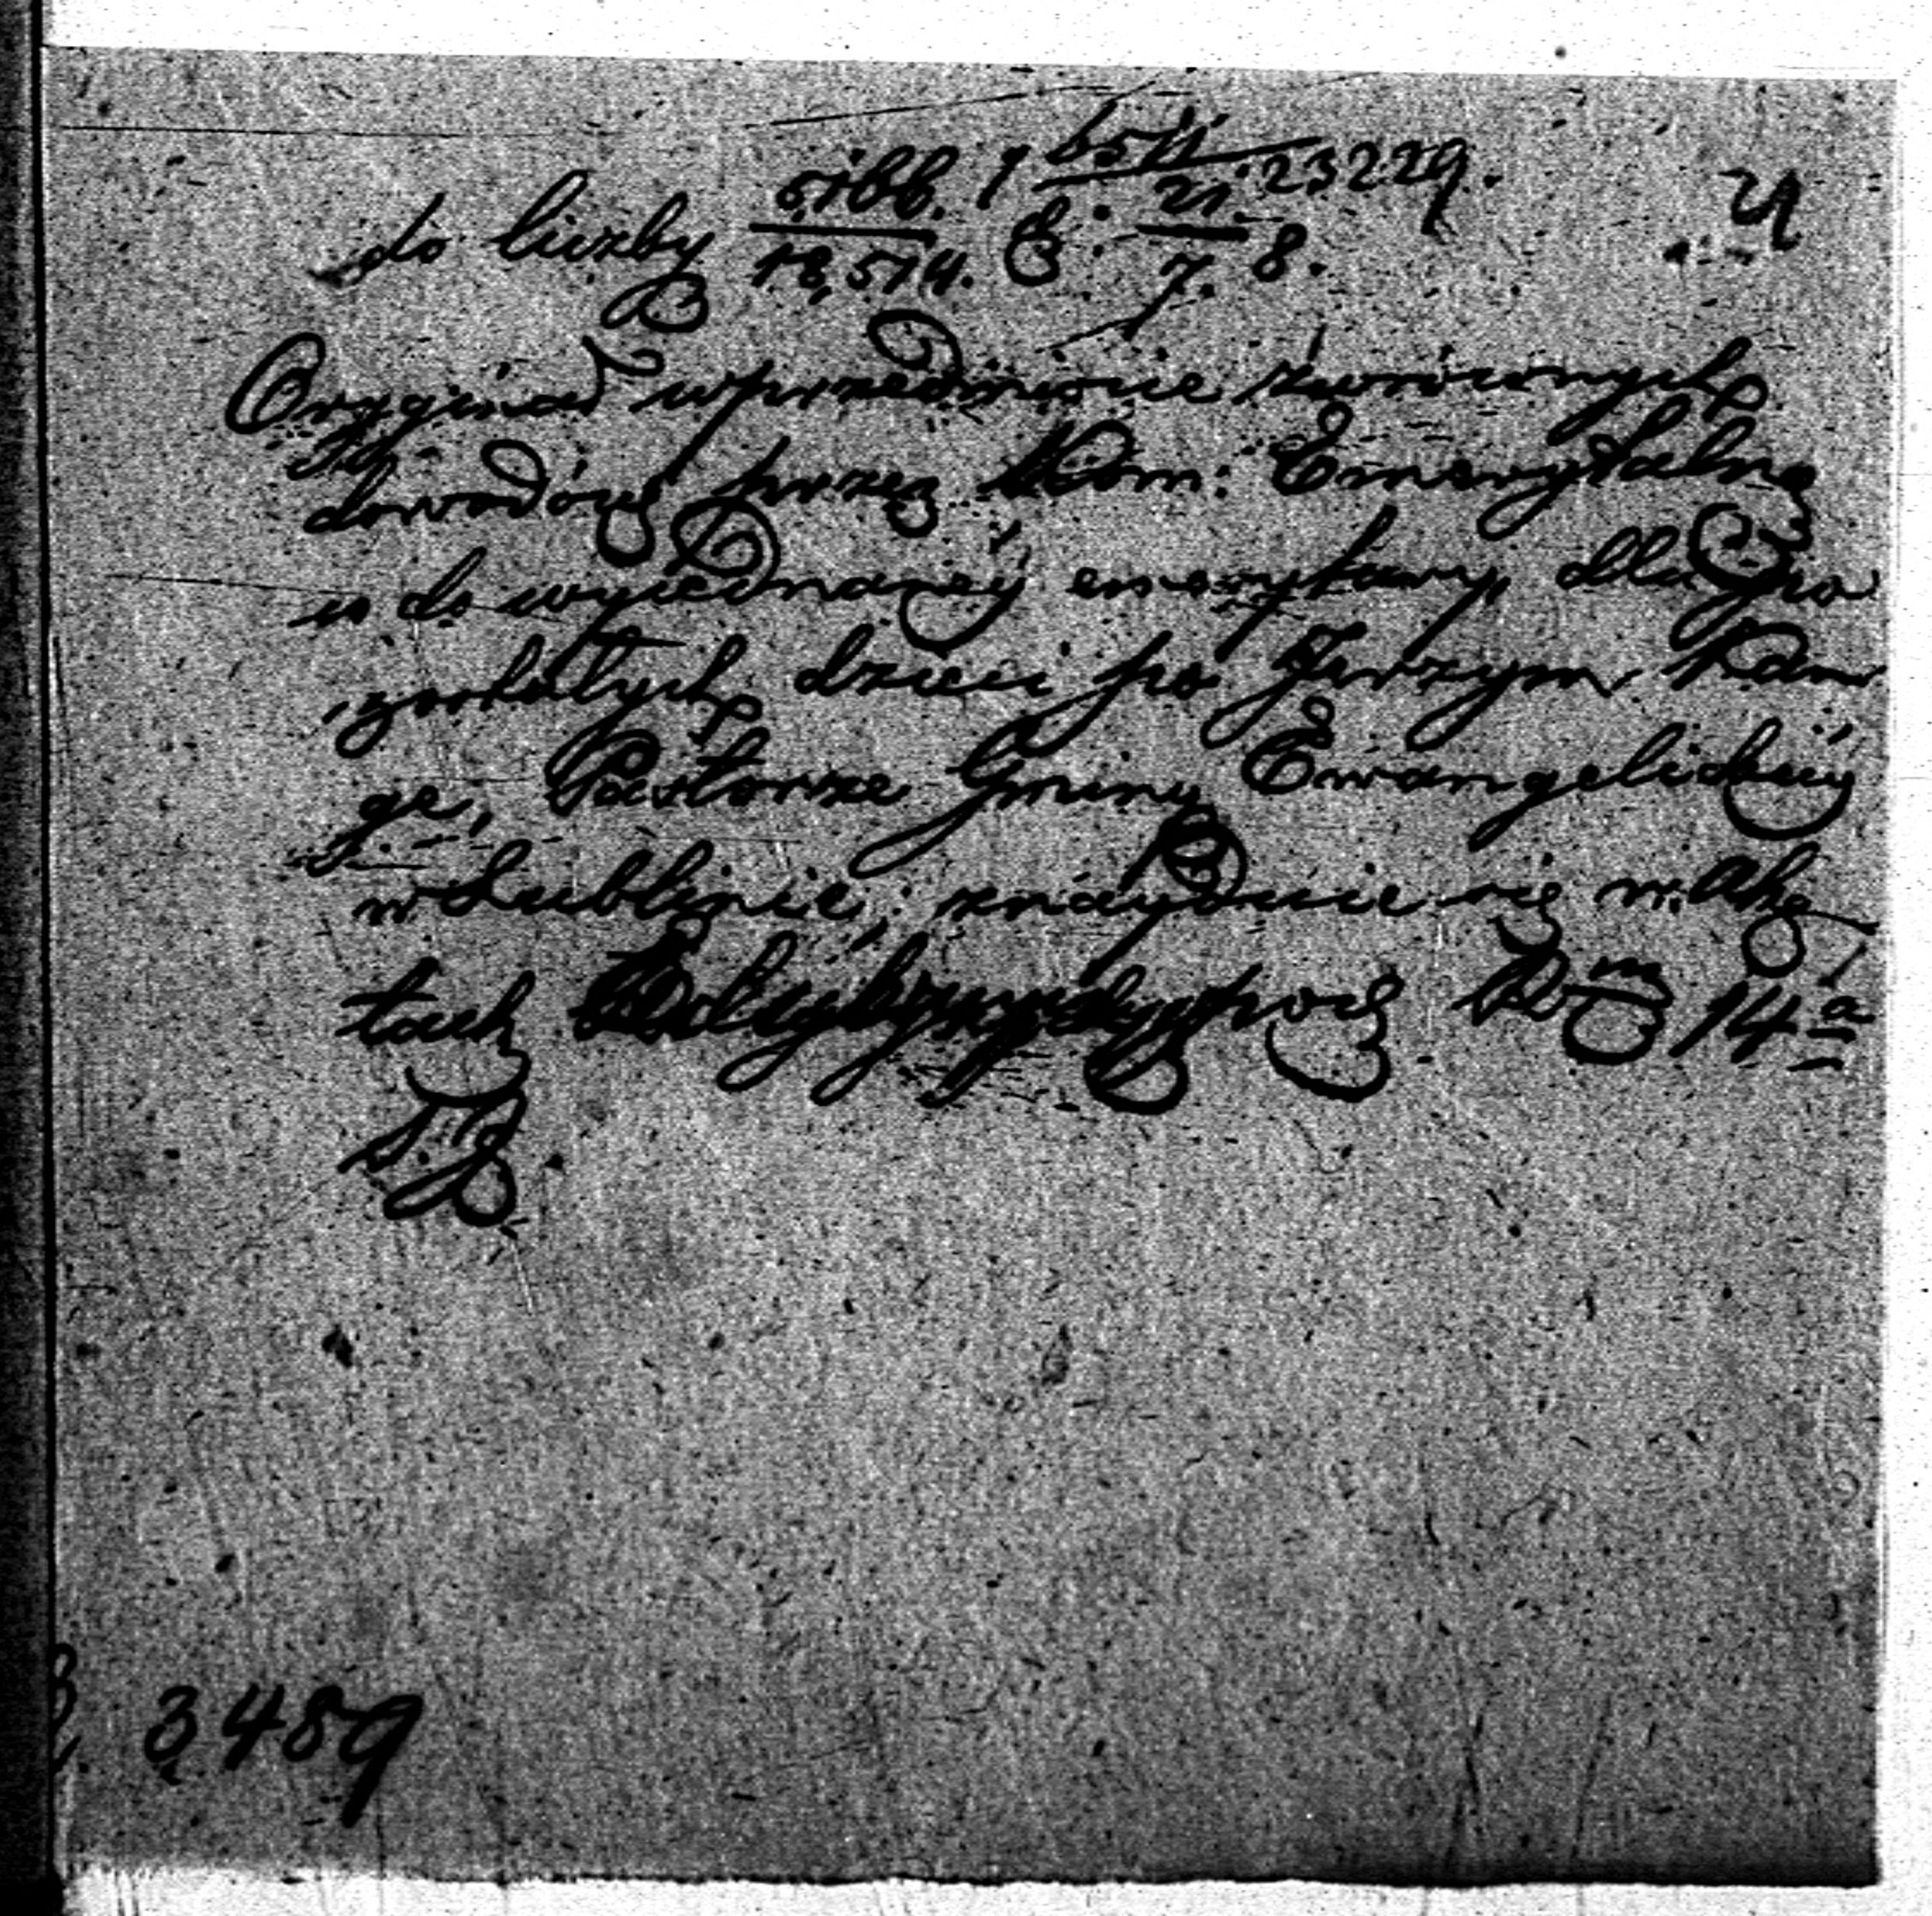 do liczby 5166. / 18,514. 21. / 7. 8. 23229.
Oryginał w przedmiocie zwróconych
dowodów przez Kom: Emerytalną
do wyiednaney emerytury, dla po
zostałych dzieci po Jerzym Kan
ge, Pastorze Gminy Ewangelickiey
w Lublinie, znayduie się w Ak
tach pod No 14 a
3489